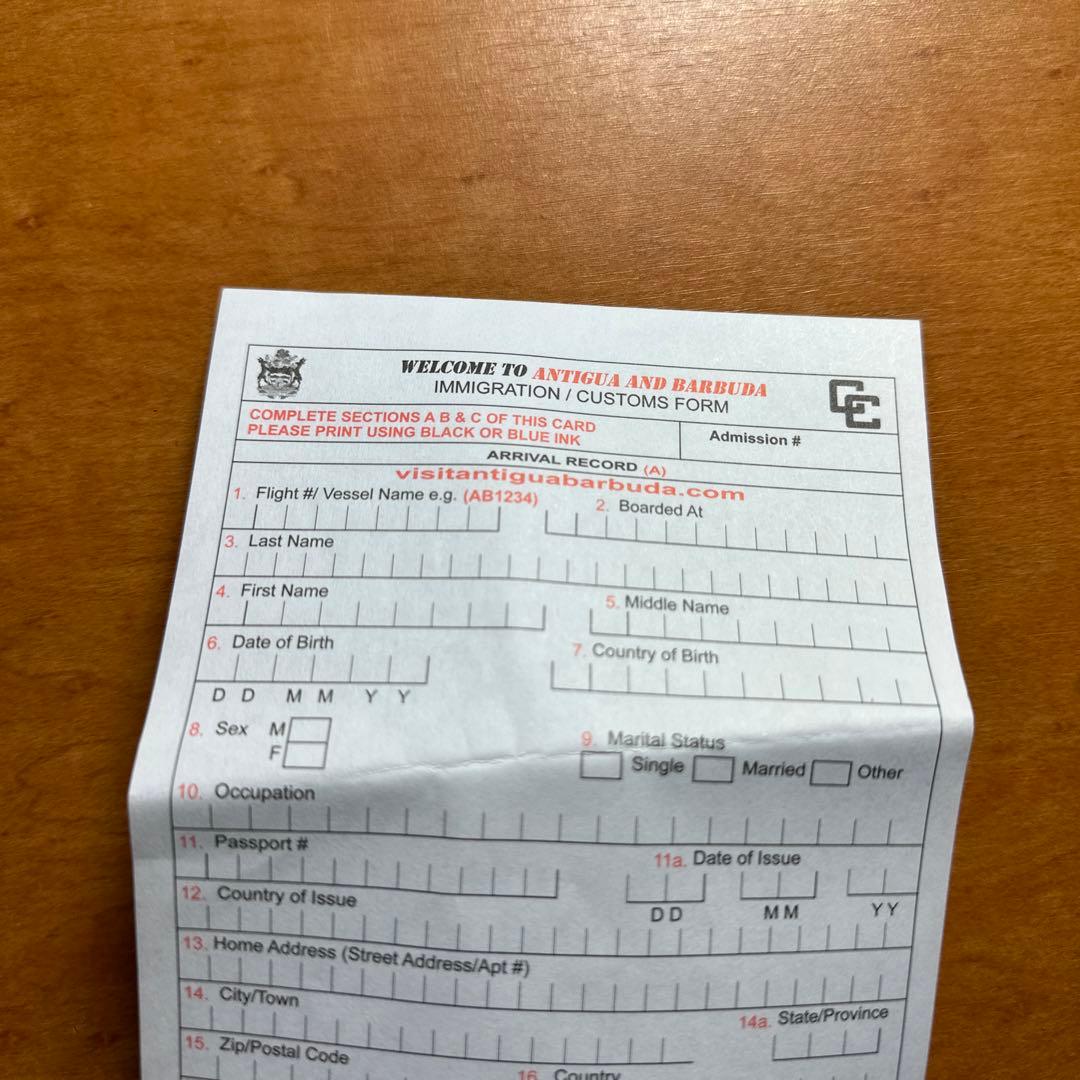 WELCOME TO ANTIGUA AND BARBUDA
IMMIGRATION / CUSTOMS FORM
COMPLETE SECTIONS A B & C OF THIS CARD
PLEASE PRINT USING BLACK OR BLUE INK
Admission #
ARRIVAL RECORD (A)
visitantiguabarbuda.com
1. Flight #/ Vessel Name e.g. (AB1234)
2. Boarded At
3. Last Name
4. First Name
5. Middle Name
6. Date of Birth
7. Country of Birth
D D M M Y Y
8. Sex M
F
9. Marital Status
Single Married Other
10. Occupation
11. Passport #
11a. Date of Issue
D D M M Y Y
12. Country of Issue
13. Home Address (Street Address/Apt #)
14. City/Town
14a. State/Province
15. Zip/Postal Code
16. Country